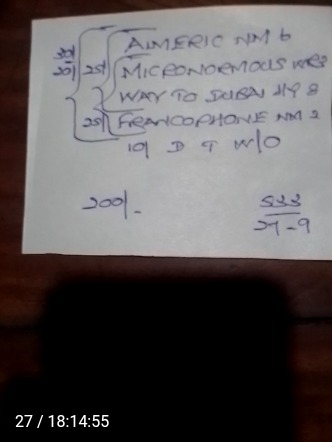 AIMERIC NM 6
25/ MICRONORMOUS
WAY TO DUBAI 8
25/ FRANCOPHONE NM 2
10/ D T W/O
200/-
533
27-9
27 / 18:14:55